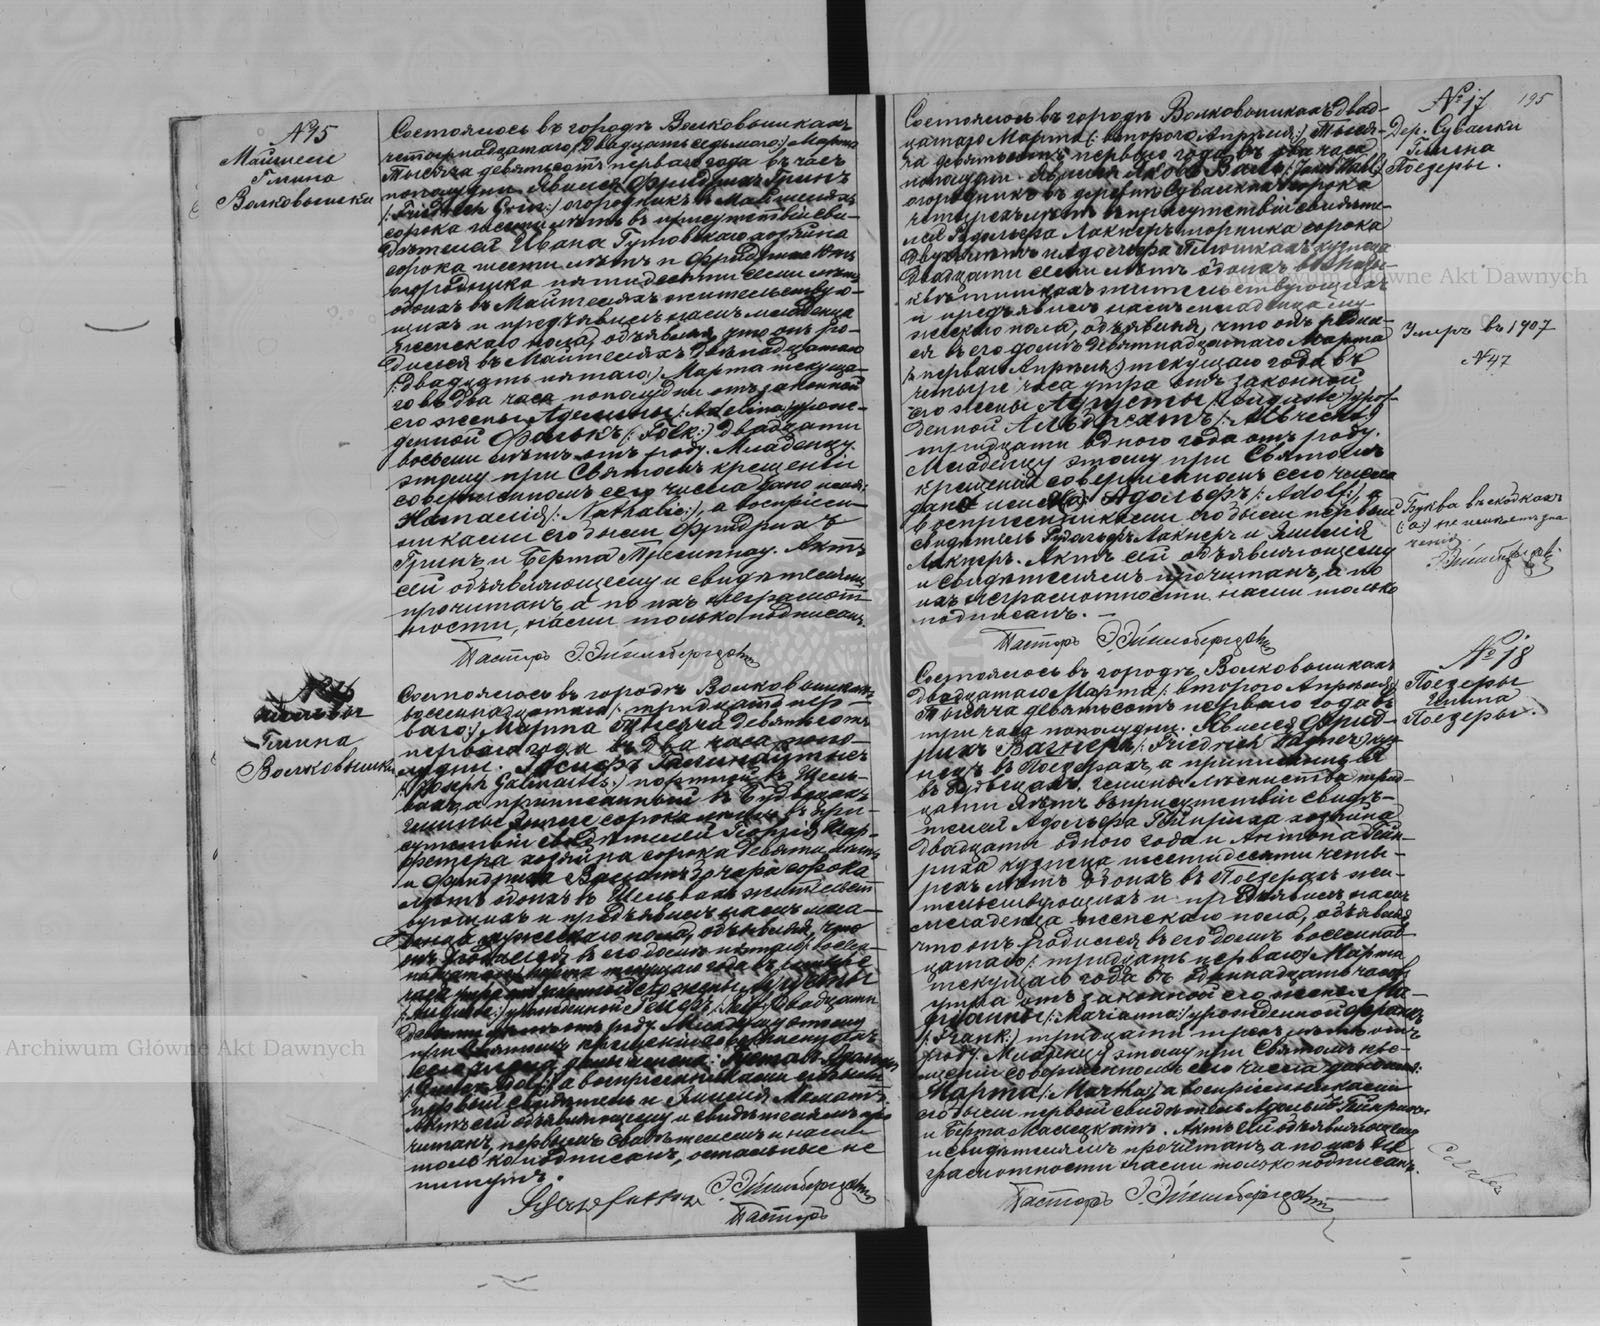 195
№ 15
Майшели
Гмина
Волковышки
Состоялось въ городѣ Волковышкахъ
четырнадцатаго /: двадцать седьмого :/ Марта
тысяча девятьсотъ перваго года въ часъ
пополудни. Явился Фридрихъ Гринъ
/: Friedrich Grin :/ огородникъ въ Майшеляхъ
сорока шести лѣтъ въ присутствіи сви-
дѣтелей Ивана Гутовскаго хозяина
сорока шести лѣтъ и Фридриха
огородника пятидесяти семи лѣтъ
обоихъ въ Майшеляхъ жительствую-
щихъ и предъявилъ намъ младенца
женскаго пола, объявляя, что онъ ро-
дился въ Майшеляхъ двѣнадцатаго
/: двадцать пятаго :/ Марта текуща-
го въ два часа пополудни отъ законной
его жены Аделины /: Adelina :/ урож-
денной Фелькъ /: Fölk :/ двадцати
восьми лѣтъ отъ роду. Младенцу
этому при Святомъ крещеніи
совершенномъ сего числа дано имя:
Наталія /: Nathalie :/, а воспріем-
никами его были Фридрихъ
Гринъ и Берта. Актъ
сей объявляющему и свидѣтелямъ
прочитанъ, а по ихъ неграмот-
ности, нами только подписанъ.
Пасторъ Э.
Гмина
Волковышки
Состоялось въ городѣ Волковышкахъ
восемнадцатаго /: тридцать пер-
ваго :/ Марта тысяча девятьсотъ
перваго года въ два часа попо-
лудни. Явился Іосифъ
/: Joseph :/ портной въ Шель-
вахъ а приписанный въ
гмины сорока лѣтъ въ при-
сутствіи свидѣтелей Георгія Шар-
фетера хозяина сорока девяти лѣтъ
и Фридриха сорока
лѣтъ обоихъ въ Шельвахъ жительст-
вующихъ и предъявилъ намъ мла-
денца мужескаго пола, объявляя, что
онъ родился въ его домѣ
Марта текущаго года въ четыре
часа утра отъ законной его жены Августы
/: Auguste :/ урожденной двадцати
девяти лѣтъ отъ роду. Младенцу этому
при Святомъ крещеніи совершенномъ
сего числа дано имена: Густавъ
а воспріемниками его были
первый свидѣтель и Эмилія
Актъ сей объявляющему и свидѣтелямъ про-
читанъ, первымъ свидѣтелемъ и нами
только подписанъ, остальные не
пишутъ.
Э.
Пасторъ
№ 17
Дер. Сувалки
Гмина
Поезеры.
Состоялось въ городѣ Волковышкахъ двад-
цатаго Марта /: второго Апрѣля :/ тыся-
ча девятьсотъ перваго года въ два часа
пополудни. Явился Яковъ Валь /: Jacob Wahl :/
огородникъ въ деревнѣ Сувалкахъ сорока
четырехъ лѣтъ въ присутствіи свидѣте-
лей Рудольфа Лакнеръ сорока
двухъ лѣтъ и Адольфа
двадцати семи лѣтъ обоихъ
жительствующихъ
и предъявилъ намъ младенца му-
жескаго пола, объявляя, что онъ родил-
ся въ его домѣ девятнадцатаго Марта
/: перваго Апрѣля :/ текущаго года въ
четыре часа утра отъ законной
его жены Августы /: Auguste :/ урож-
денной
тридцати одного года отъ роду.
Младенцу этому при Святомъ
крещеніи совершенномъ сего числа
дано имя (а): Адольфъ /: Adolf :/, а
воспріемниками его были первый
свидѣтель Рудольфъ Лакнеръ и Эмилія
Лакнеръ. Актъ сей объявляющему
и свидѣтелямъ прочитанъ, а по
ихъ неграмотности нами только
подписанъ. —
Пасторъ Э.
Умеръ въ 1907
№ 47
Буква въ скобкахъ
(: а :) не имѣетъ зна-
ченія.
№ 18
Поезеры
Гмина
Поезеры.
Состоялось въ городѣ Волковышкахъ
двадцатаго Марта /: второго Апрѣля :/
тысяча девятьсотъ перваго года въ
три часа пополудни. Явился Фрид-
рихъ Вагнеръ /: Friedrich Wagner :/ куз-
нецъ въ Поезерахъ, а приписанный
гмины трид-
цати лѣтъ въ присутствіи свидѣ-
телей Адольфа хозяина
двадцати одного года и Антона
кузнеца шестидесяти четы-
рехъ лѣтъ обоихъ въ Поезерахъ жи-
тельствующихъ и предъявилъ намъ
младенца женскаго пола, объявляя,
что онъ родился въ его домѣ восемнад-
цатаго /: тридцать перваго :/ Марта
текущаго года въ одиннадцать часовъ
утра отъ законной его жены Ма-
ріанны /: Marianna :/ урожденной Франкъ
/: Frank :/ тридцати трехъ лѣтъ отъ
роду. Младенцу этому при Святомъ кре-
щеніи совершенномъ сего числа дано имя:
Марта /: Martha :/, а воспріемниками
его были первый свидѣтель Адольфъ
и Берта. Актъ сей объявляющему
и свидѣтелямъ прочитанъ, а по ихъ не-
грамотности нами только подписанъ.
Пасторъ Э.
Archiwum Główne Akt Dawnych
Archiwum Główne Akt Dawnych